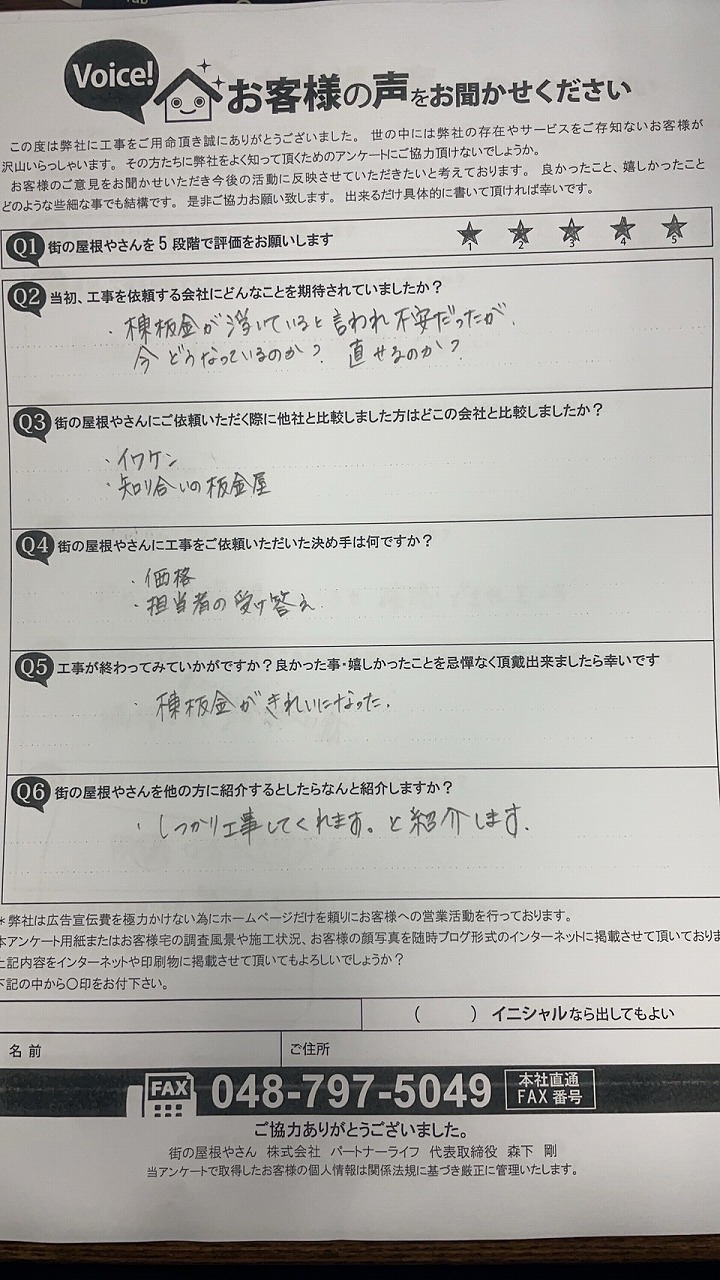 Voice!
お客様の声をお聞かせください
この度は弊社に工事をご用命頂き誠にありがとうございました。 世の中には弊社の存在やサービスをご存知ないお客様が
沢山いらっしゃいます。 その方たちに弊社をよく知って頂くためのアンケートにご協力頂けないでしょうか。
お客様のご意見をお聞かせいただき今後の活動に反映させていただきたいと考えております。 良かったこと、嬉しかったこと
どのような些細な事でも結構です。 是非ご協力お願い致します。 出来るだけ具体的に書いて頂ければ幸いです。
Q1 街の屋根やさんを5段階で評価をお願いします 1 2 3 4 5
Q2 当初、工事を依頼する会社にどんなことを期待されていましたか？
・棟板金が浮いていると言われ不安だったが、
今どうなっているのか？ 直せるのか？
Q3 街の屋根やさんにご依頼いただく際に他社と比較しました方はどこの会社と比較しましたか？
・イワケン
・知り合いの板金屋
Q4 街の屋根やさんに工事をご依頼いただいた決め手は何ですか？
・価格
・担当者の受け答え
Q5 工事が終わってみていかがですか？良かった事・嬉しかったことを忌憚なく頂戴出来ましたら幸いです
・棟板金がきれいになった。
Q6 街の屋根やさんを他の方に紹介するとしたらなんと紹介しますか？
・しっかり工事してくれます。と紹介します。
＊弊社は広告宣伝費を極力かけない為にホームページだけを頼りにお客様への営業活動を行っております。
本アンケート用紙またはお客様宅の調査風景や施工状況、お客様の顔写真を随時ブログ形式のインターネットに掲載させて頂いておりま
上記内容をインターネットや印刷物に掲載させて頂いてもよろしいでしょうか？
下記の中から〇印をお付下さい。
（　　）イニシャルなら出してもよい
名前 ご住所
FAX 048-797-5049 本社直通 FAX番号
ご協力ありがとうございました。
街の屋根やさん 株式会社 パートナーライフ 代表取締役 森下 剛
当アンケートで取得したお客様の個人情報は関係法規に基づき厳正に管理いたします。